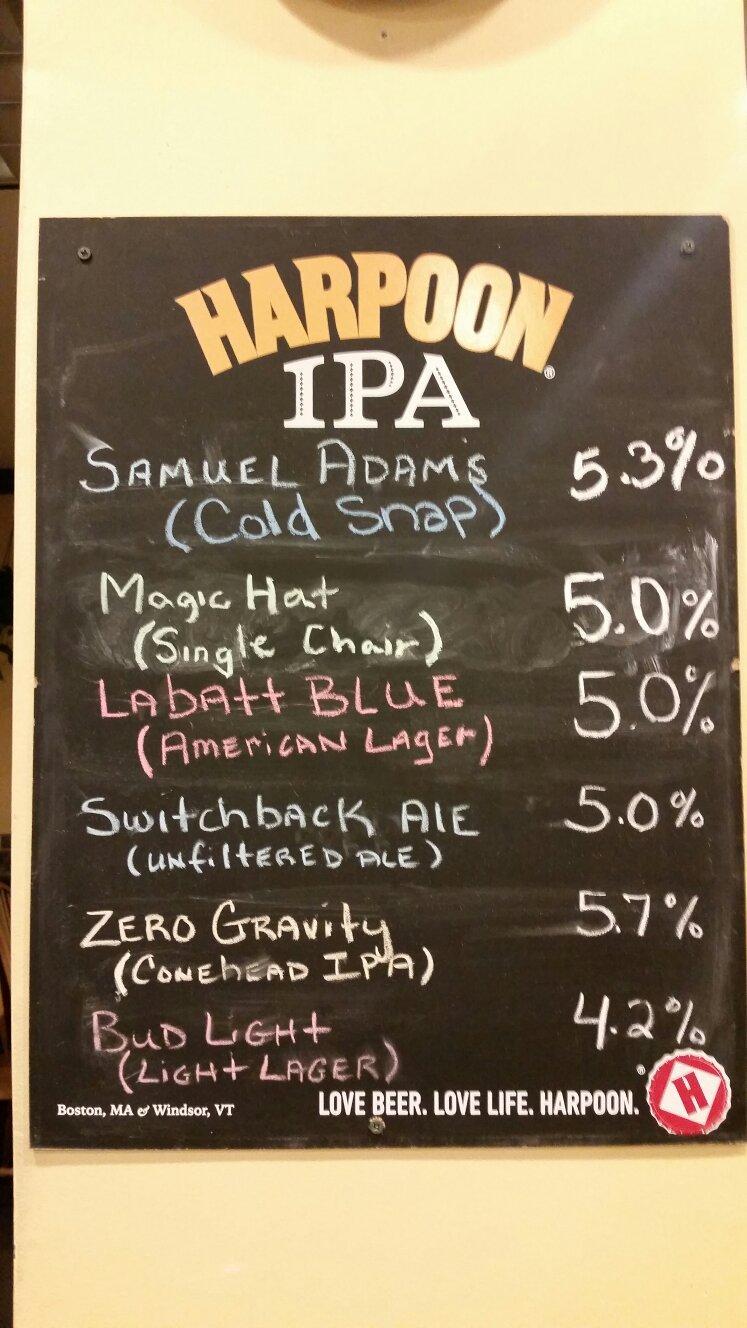 HARPOON®
IPA
SAMUEL ADAMS 5.3%
(Cold Snap)
Magic Hat 5.0%
(Single Chair)
LAbAtt BLUE 5.0%
(AMERICAN LAGER)
SwitchbACK AlE 5.0%
(UNfiltERED ALE)
ZERO GRAVity 5.7%
(CONEhEAD IPA)
BUD LiGHt 4.2%
(LiGHt LAGER)
Boston, MA & Windsor, VT LOVE BEER. LOVE LIFE. HARPOON. ® H